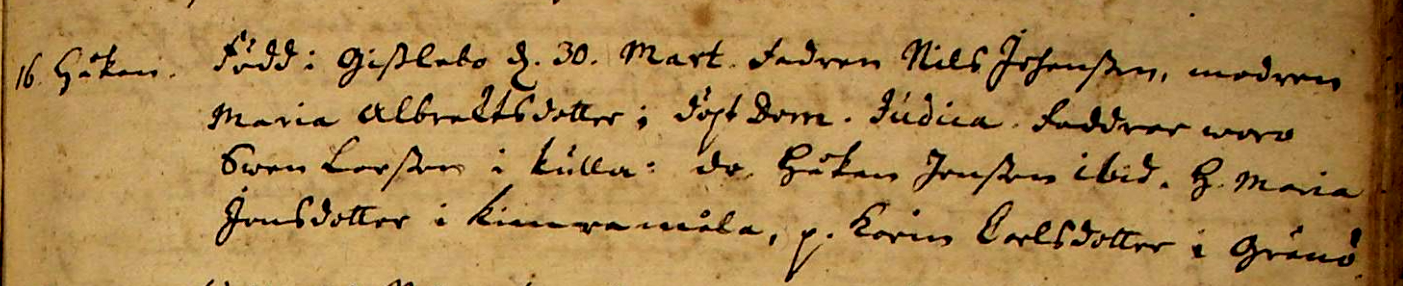 16. Håkan. Född i Gißlebo d. 30. Mart. Fadren Nils Johanßon, modren
Maria Albrektsdotter; döpt Dom. Judica. Faddrar woro
Swen Larßon i Kulla: dr. Håkan Jonßon ibid. H. Maria
Jonsdotter i Kimramåla, p. Karin Carlsdotter i Grånö